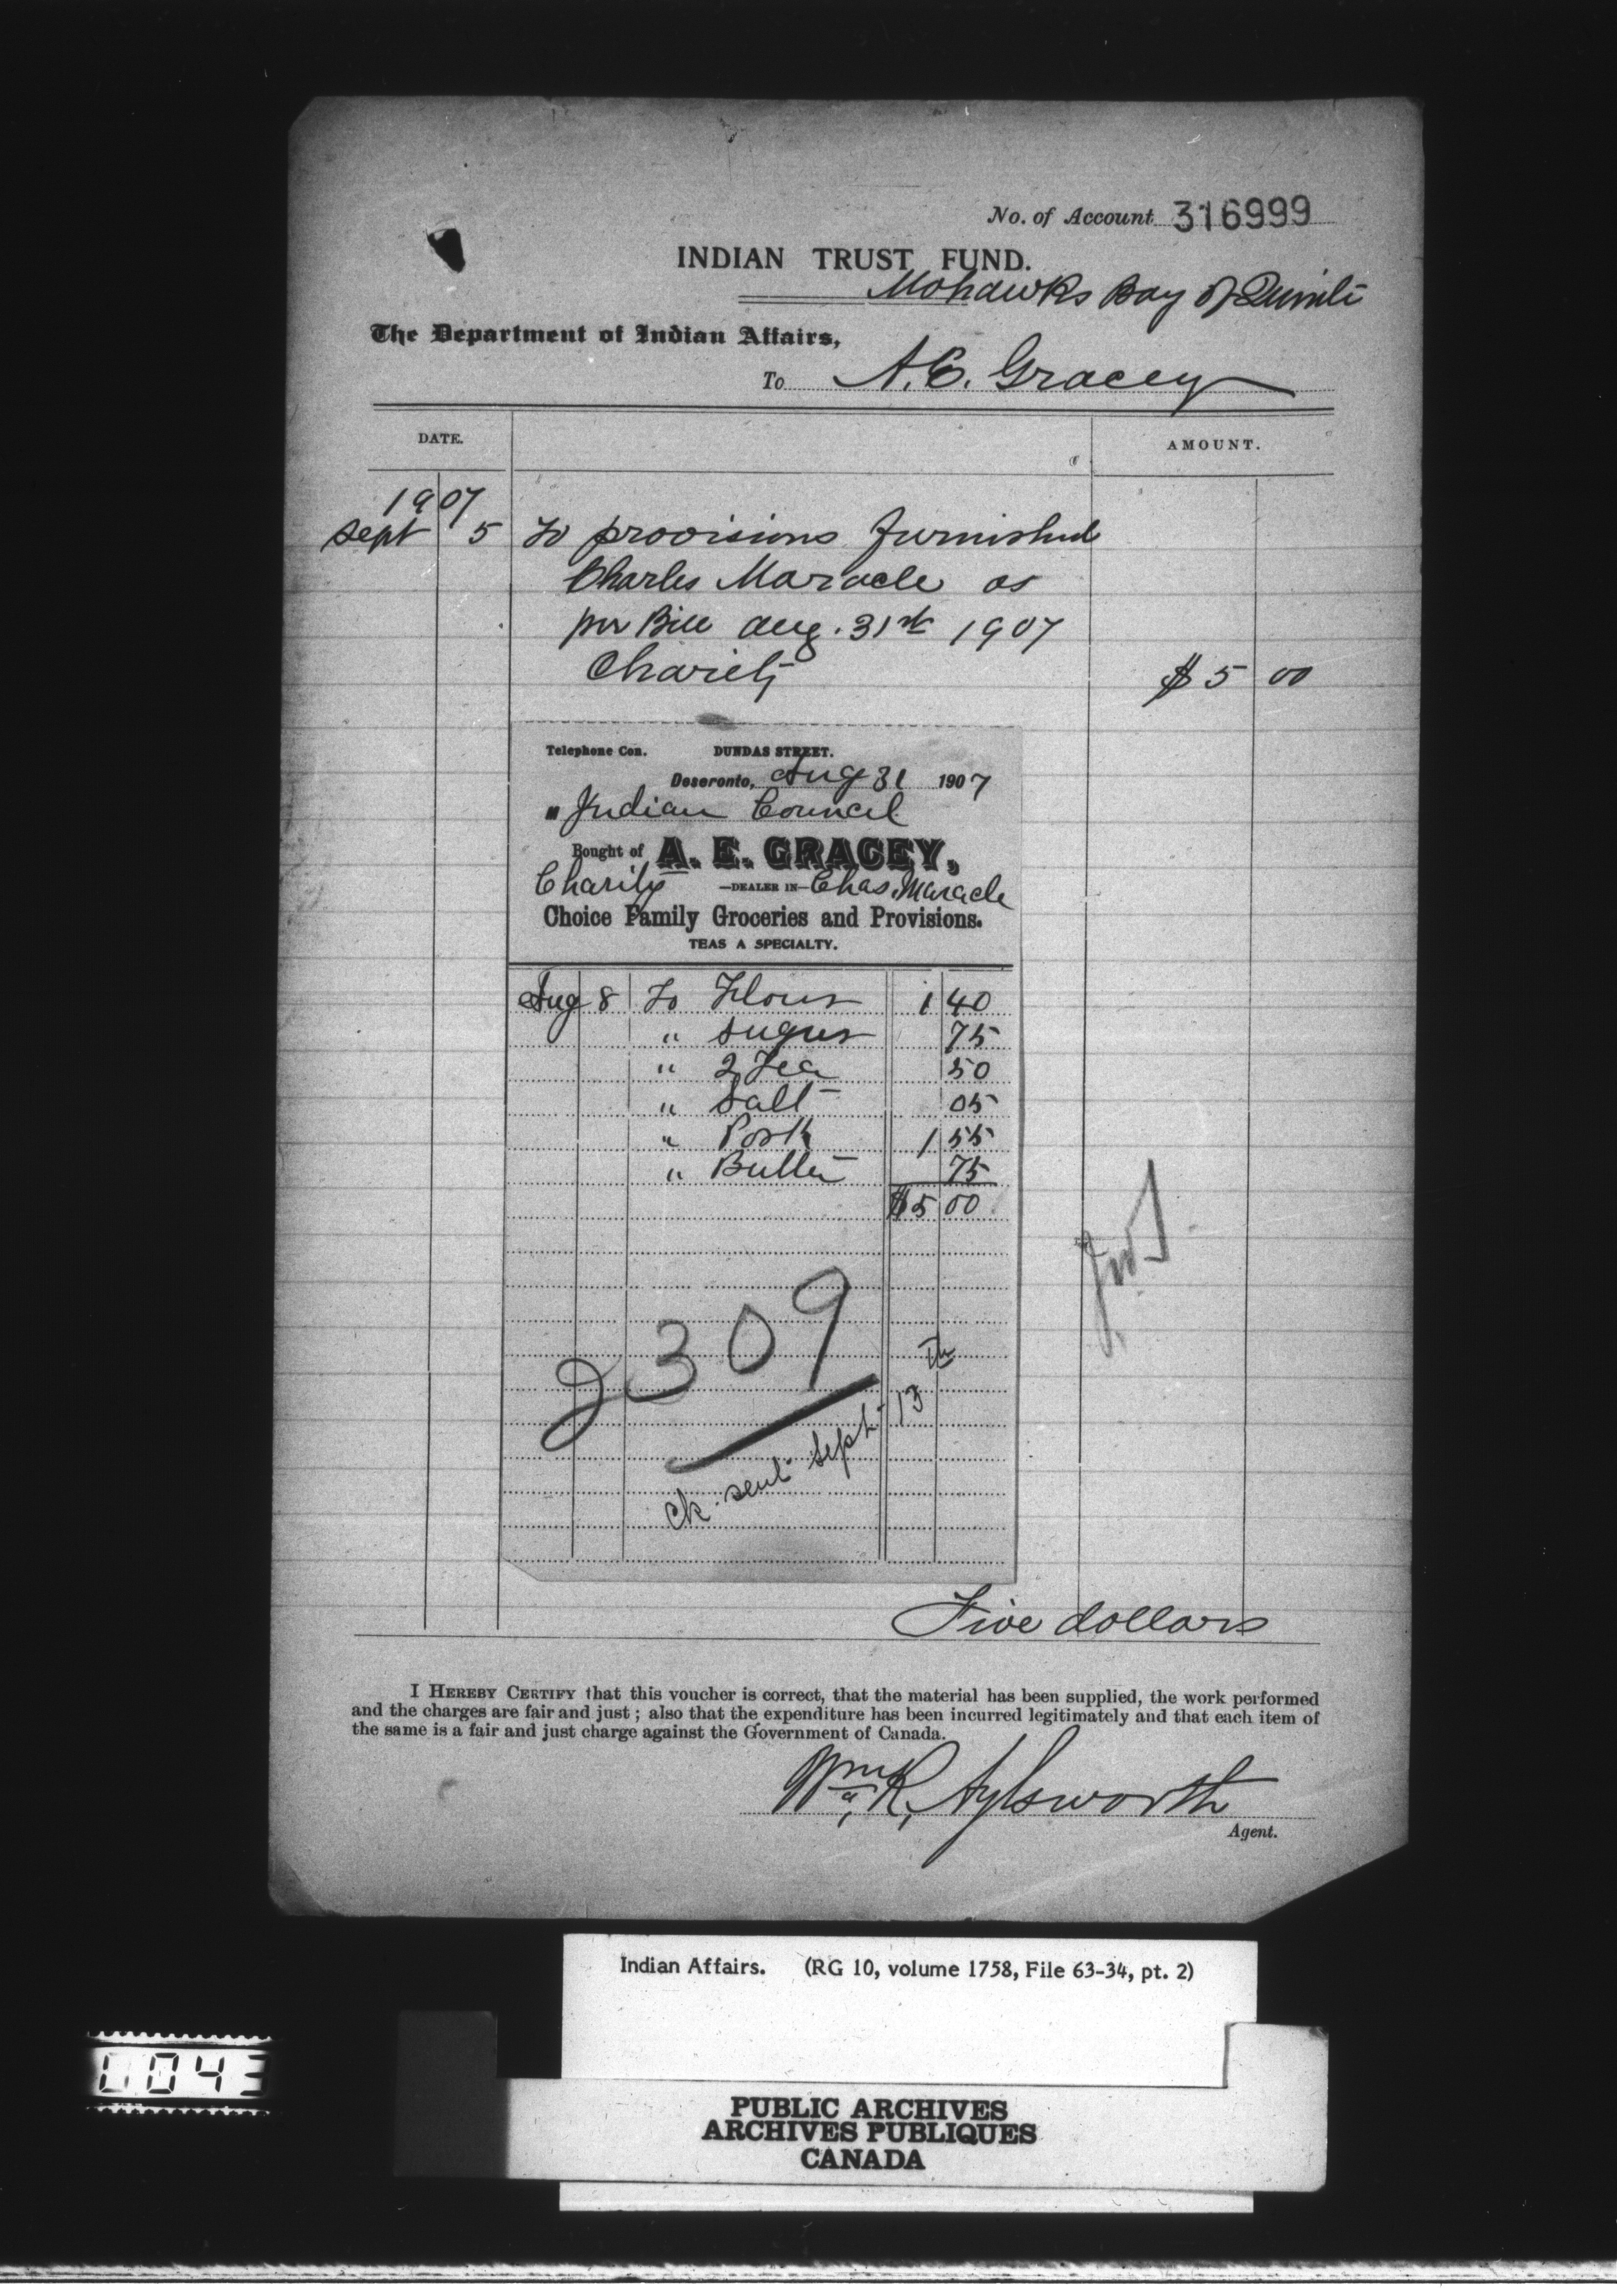 No. of Account 316999
INDIAN TRUST FUND.
Mohawks Bay of Quinte
The Department of Indian Affairs,
To A. E. Gracey
DATE. AMOUNT.
1907
Sept 5 To provisions furnished
Charles Maracle as
per Bill Aug. 31st 1907
Charity $5 00
Telephone Con. DUNDAS STREET.
Deseronto, Aug 31 1907
M Indian Council
Bought of A. E. GRACEY,
Charity —DEALER IN— Chas. Maracle
Choice Family Groceries and Provisions.
TEAS A SPECIALTY.
Aug 8 To Flour 1 40
" Sugar 75
" 2 Tea 50
" Salt 05
" Pork 1 55
" Butter 75
$5 00
2309
Ck. sent Sept 13th
Five dollars
I HEREBY CERTIFY that this voucher is correct, that the material has been supplied, the work performed
and the charges are fair and just ; also that the expenditure has been incurred legitimately and that each item of
the same is a fair and just charge against the Government of Canada.
Wm. R. Aylsworth
Agent.
Indian Affairs. (RG 10, volume 1758, File 63-34, pt. 2)
0043
PUBLIC ARCHIVES
ARCHIVES PUBLIQUES
CANADA